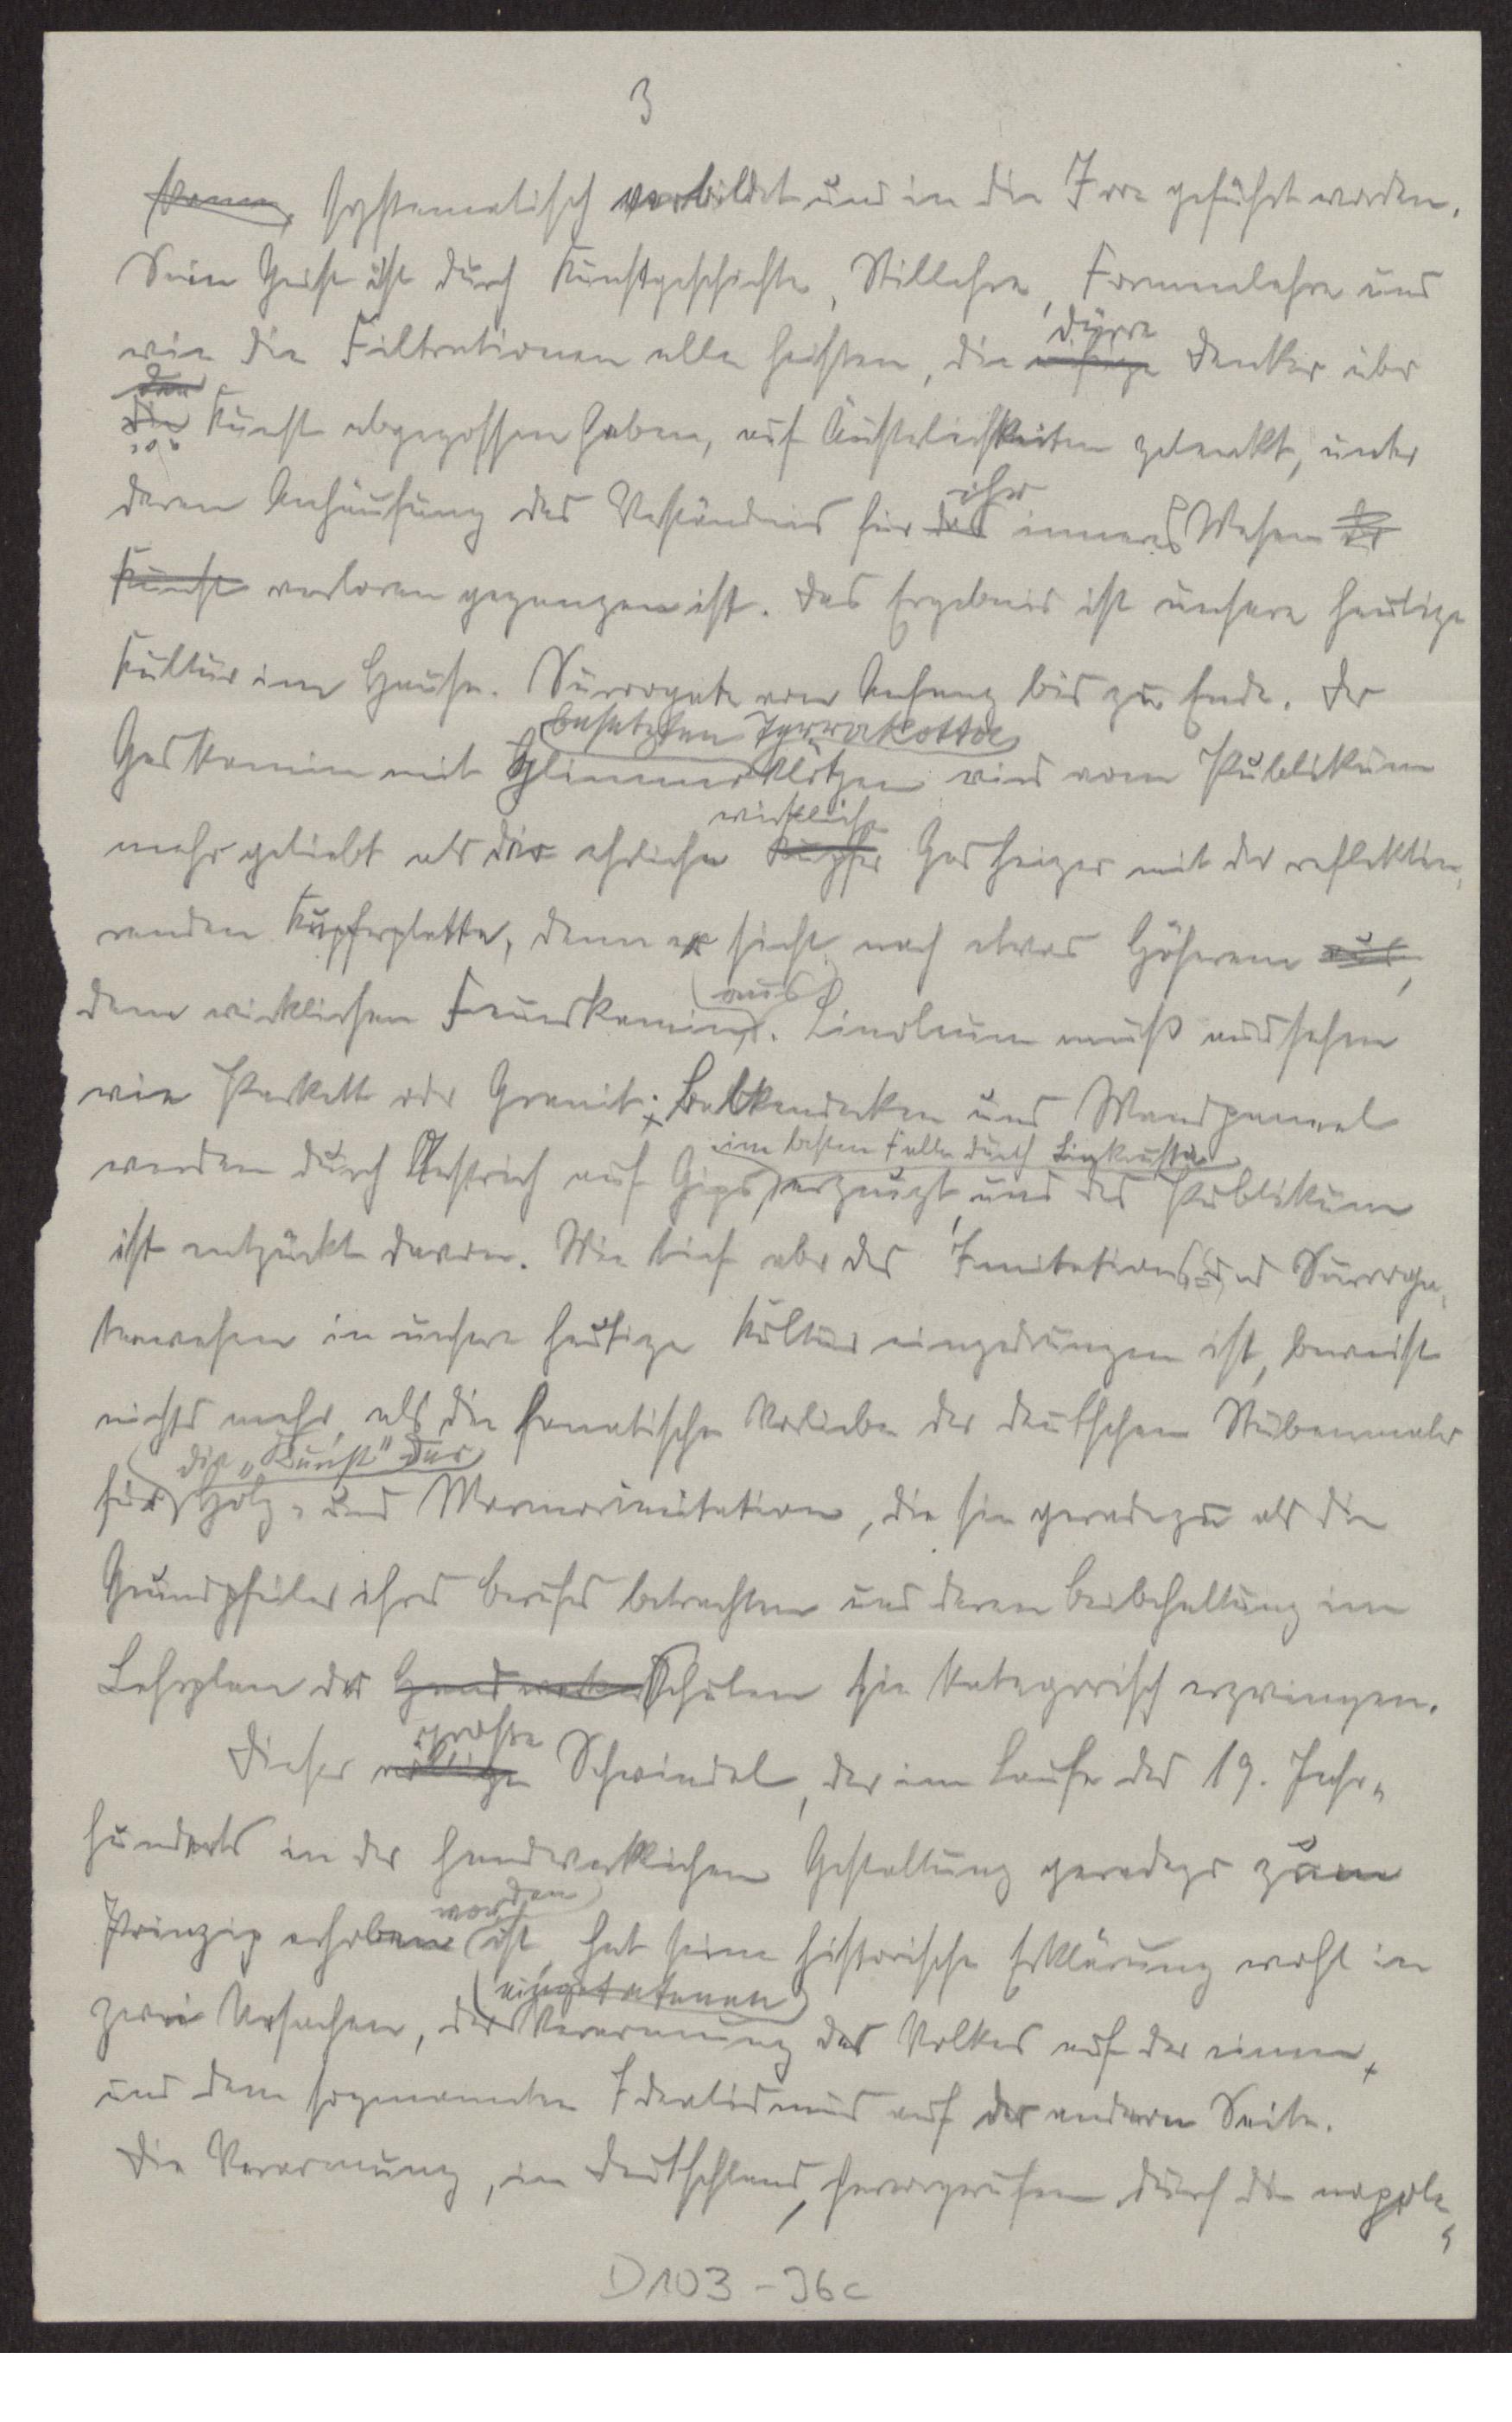 3
systematisch verbildet und in die Irre geführt worden.
Sein Geist ist durch Kunstgeschichte, Stillehre, Formenlehre und
wie die Filtrationen alle heissen, die dürre Denker über
die Kunst abgegossen haben, auf Äusserlichkeiten gelenkt, unter
deren Anhäufung das Verständnis für ihr inneres Wesen der
Kunst verloren gegangen ist. Das Ergebnis ist unsere heutige
Kultur im Hause. Surrogate von Anfang bis zu Ende. Der
besetzten Terrakotta
Gaskamin mit Glimmer klötzen wird vom Publikum
wirkliche
mehr geliebt als der ehrliche Kupfer Gasheizer mit der reflektie-
renden Kupferplatte, denn er sieht nach etwas Höherem aus,
dem wirklichen Feuerkamin aus. Linoleum muß aussehen
wie Parkett oder Granit; Balkendecken und Wandpaneel
im besten Falle durch Linkrusta
werden durch Anstrich auf Gips erzeugt und das Publikum
ist entzückt davon. Wie tief aber das Imitations- und Surroga-
tenwesen in unsere heutige Kultur eingedrungen ist, beweist
nichts mehr, als die fanatische Vorliebe der deutschen Stubenmaler
die „Kunst" der
für Holz- und Marmorimitation, die sie geradezu als die
Grundpfeiler ihres Berufes betrachten und deren Beibehaltung im
Lehrplan der Handwerker Schulen sie kategorisch erzwingen.
grosse
Dieser Schwindel, der im Laufe des 19. Jahr-
hunderts in der handwerklichen Gestaltung geradezu zum
worden
Prinzip erhoben ist, hat seine historische Erklärung wohl in
eingetretenen
zwei Ursachen, der Verarmung des Volkes auf der einen,
und dem sogenannten Idealismus auf der anderen Seite.
Die Verarmung, in Deutschland, hervorgerufen durch die napole-
D103-36c